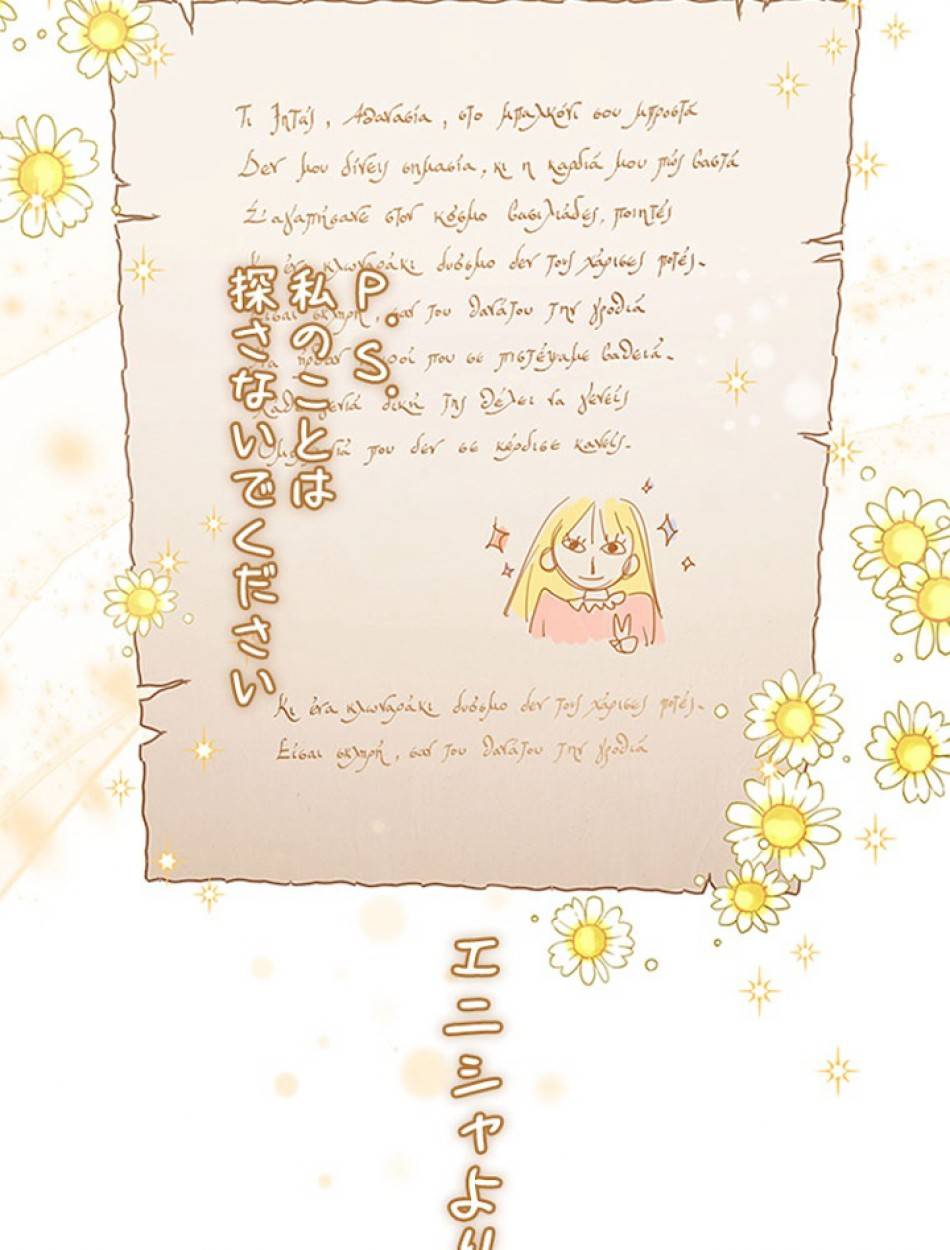 Τι ζητάς, Αθανασία, στο μπαλκόνι σου μπροστά
Δεν μου δίνεις σημασία, κι η καρδιά μου πώς βαστά
Σ'αγαπήσανε στον κόσμο βασιλιάδες, ποιητές
Κι ένα κλωναράκι δυόσμο δεν τους χάρισες ποτές.
Είσαι σκληρή, σαν του θανάτου την γροθιά
που σε πιστέψαμε βαθειά.
γενιά δική της θέλει να γενείς
που δεν σε κέρδισε κανείς.
P.S.
私のことは
探さないでください
Κι ένα κλωναράκι δυόσμο δεν τους χάρισες ποτές.
Είσαι σκληρή, σαν του θανάτου την γροθιά
エニシャより